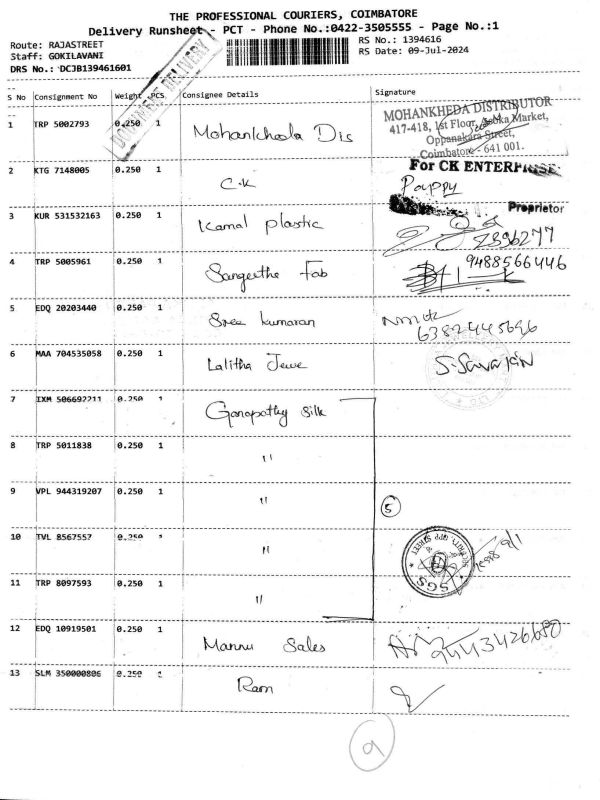 THE PROFESSIONAL COURIERS, COIMBATORE
Delivery Runsheet - PCT - Phone No.:0422-3505555 - Page No.:1
Route: RAJASTREET
RS No.: 1394616
Staff: GOKILAVANI
RS Date: 09-Jul-2024
DRS No.: DCJB139461601
DOCUMENT DELIVERY
S No Consignment No Weight PCS Consignee Details Signature
1 TRP 5002793 0.250 1 Mohankheda Dis
MOHANKHEDA DISTRIBUTOR
417-418, 1st Floor, Asoka Market,
Oppanakara Street,
Coimbatore - 641 001.
2 KTG 7148005 0.250 1 C.K
For CK ENTERPRISE
Pappy
Proprietor
3 KUR 531532163 0.250 1 Kamal plastic
4 TRP 5005961 0.250 1 Sangeethe Fab 9488566446
5 EDQ 20203440 0.250 1 Sree kumaran
6382445696
6 MAA 704535058 0.250 1 Lalitha Jewe
7 IXM 506692211 0.250 1 Ganapathy Silk
8 TRP 5011838 0.250 1 "
9 VPL 944319207 0.250 1 " 5
10 TVL 8567557 0.250 1 "
SGS
11 TRP 8097593 0.250 1 "
12 EDQ 10919501 0.250 1 Mannu Sales 9443426680
13 SLM 350000806 0.250 1 Ram
9